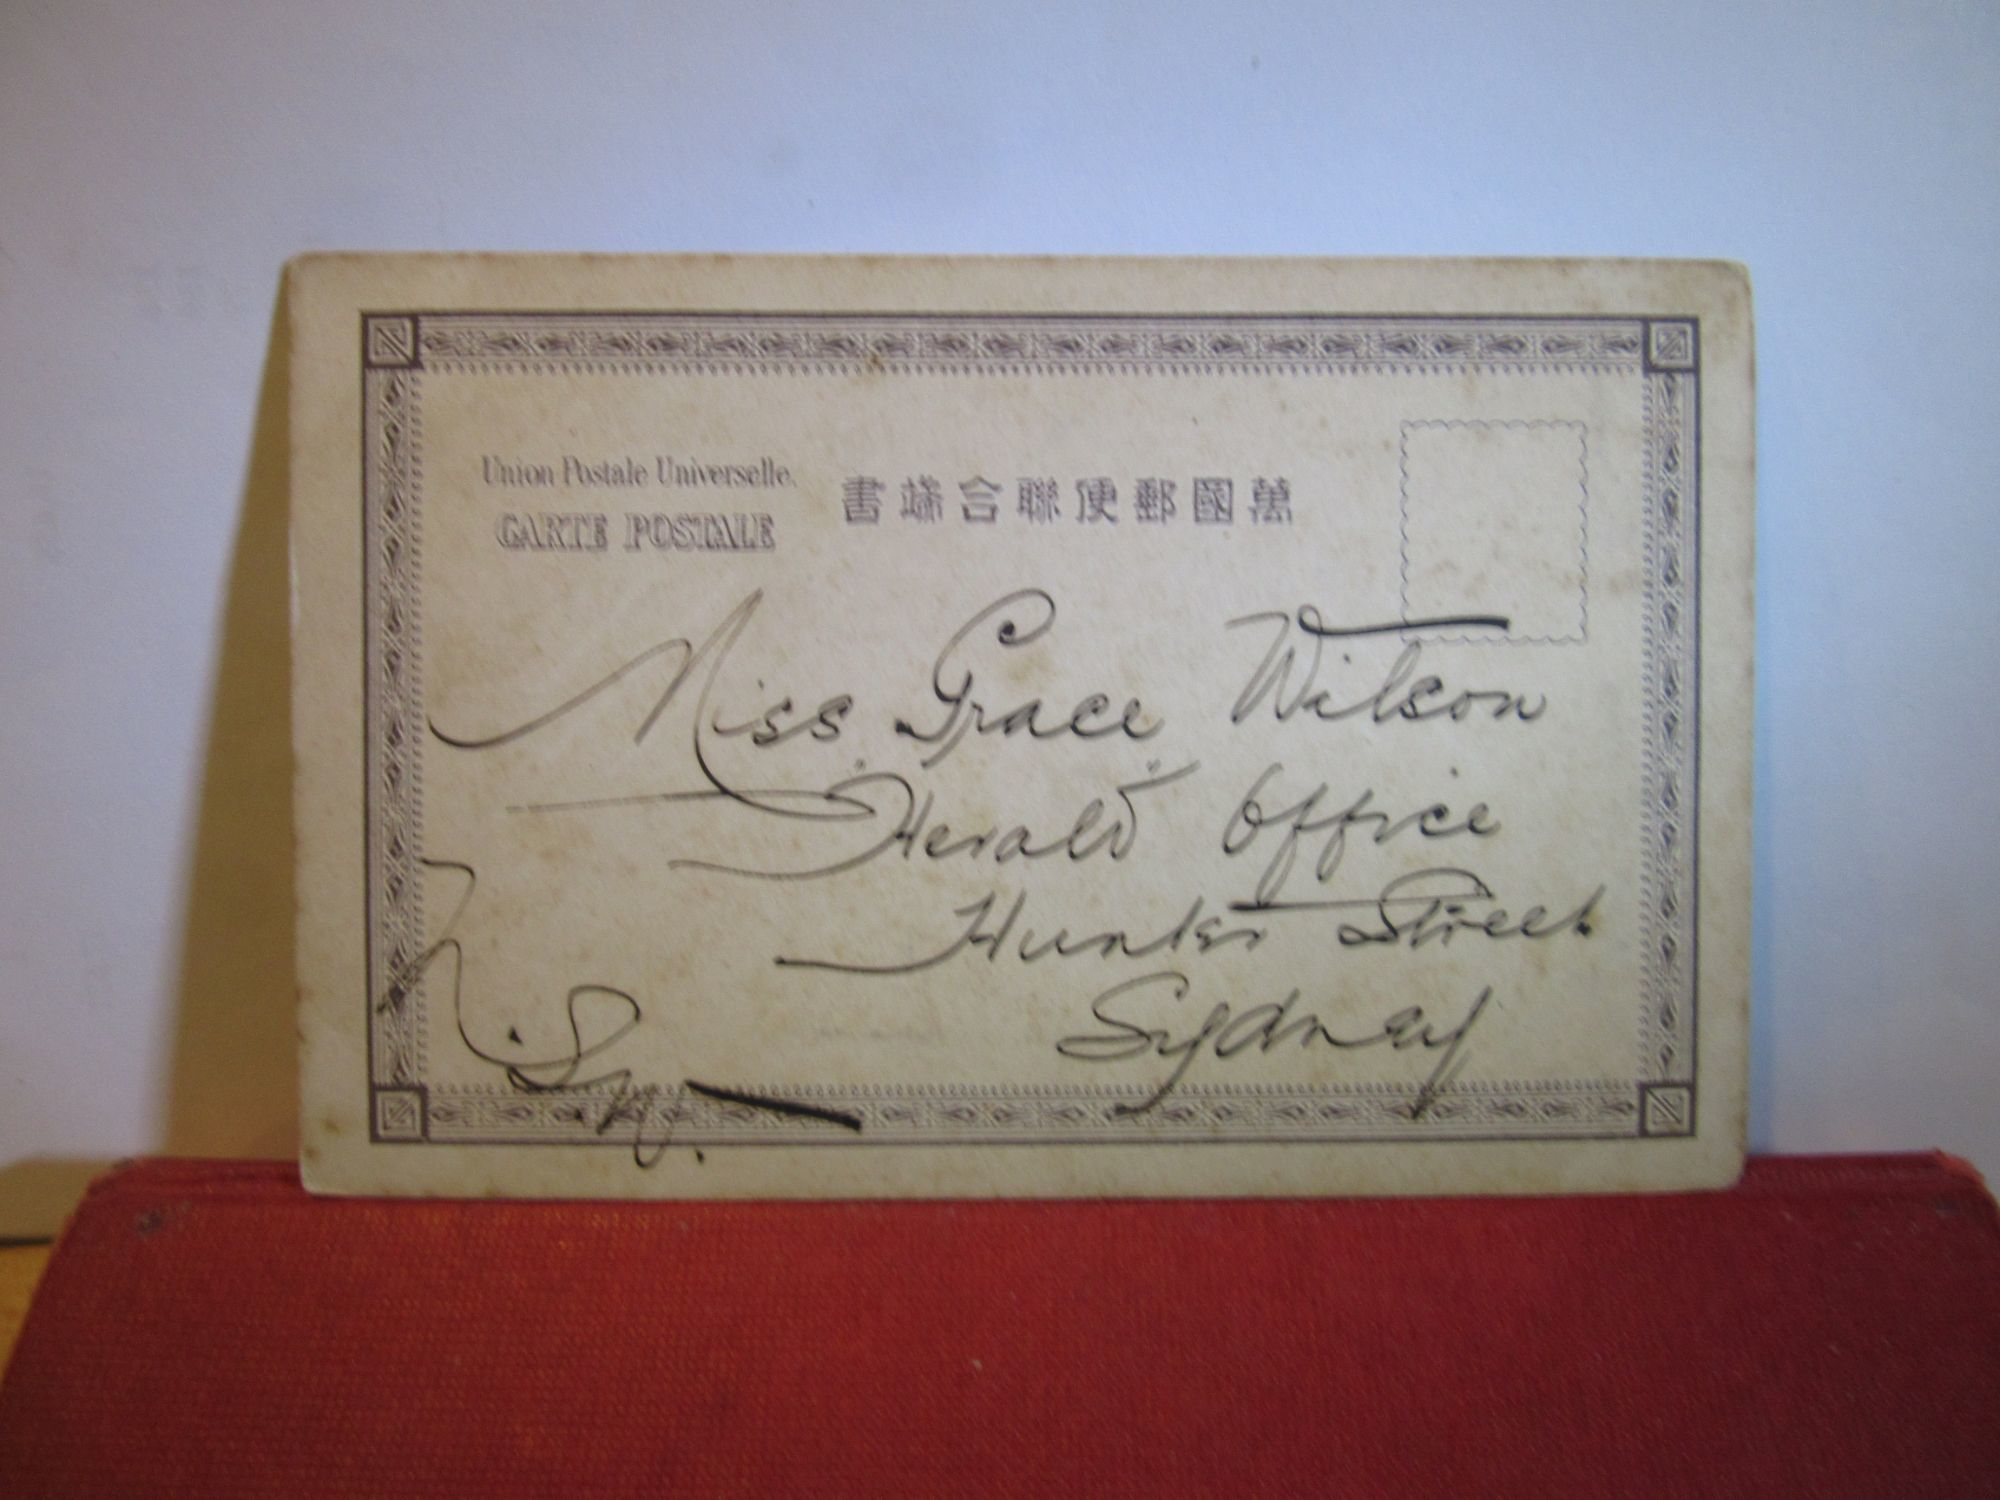 Union Postale Universelle.
CARTE POSTALE
書端合聯便郵國萬
Miss Grace Wilson
Herald Office
Hunter Street
Sydney
N.S.W.